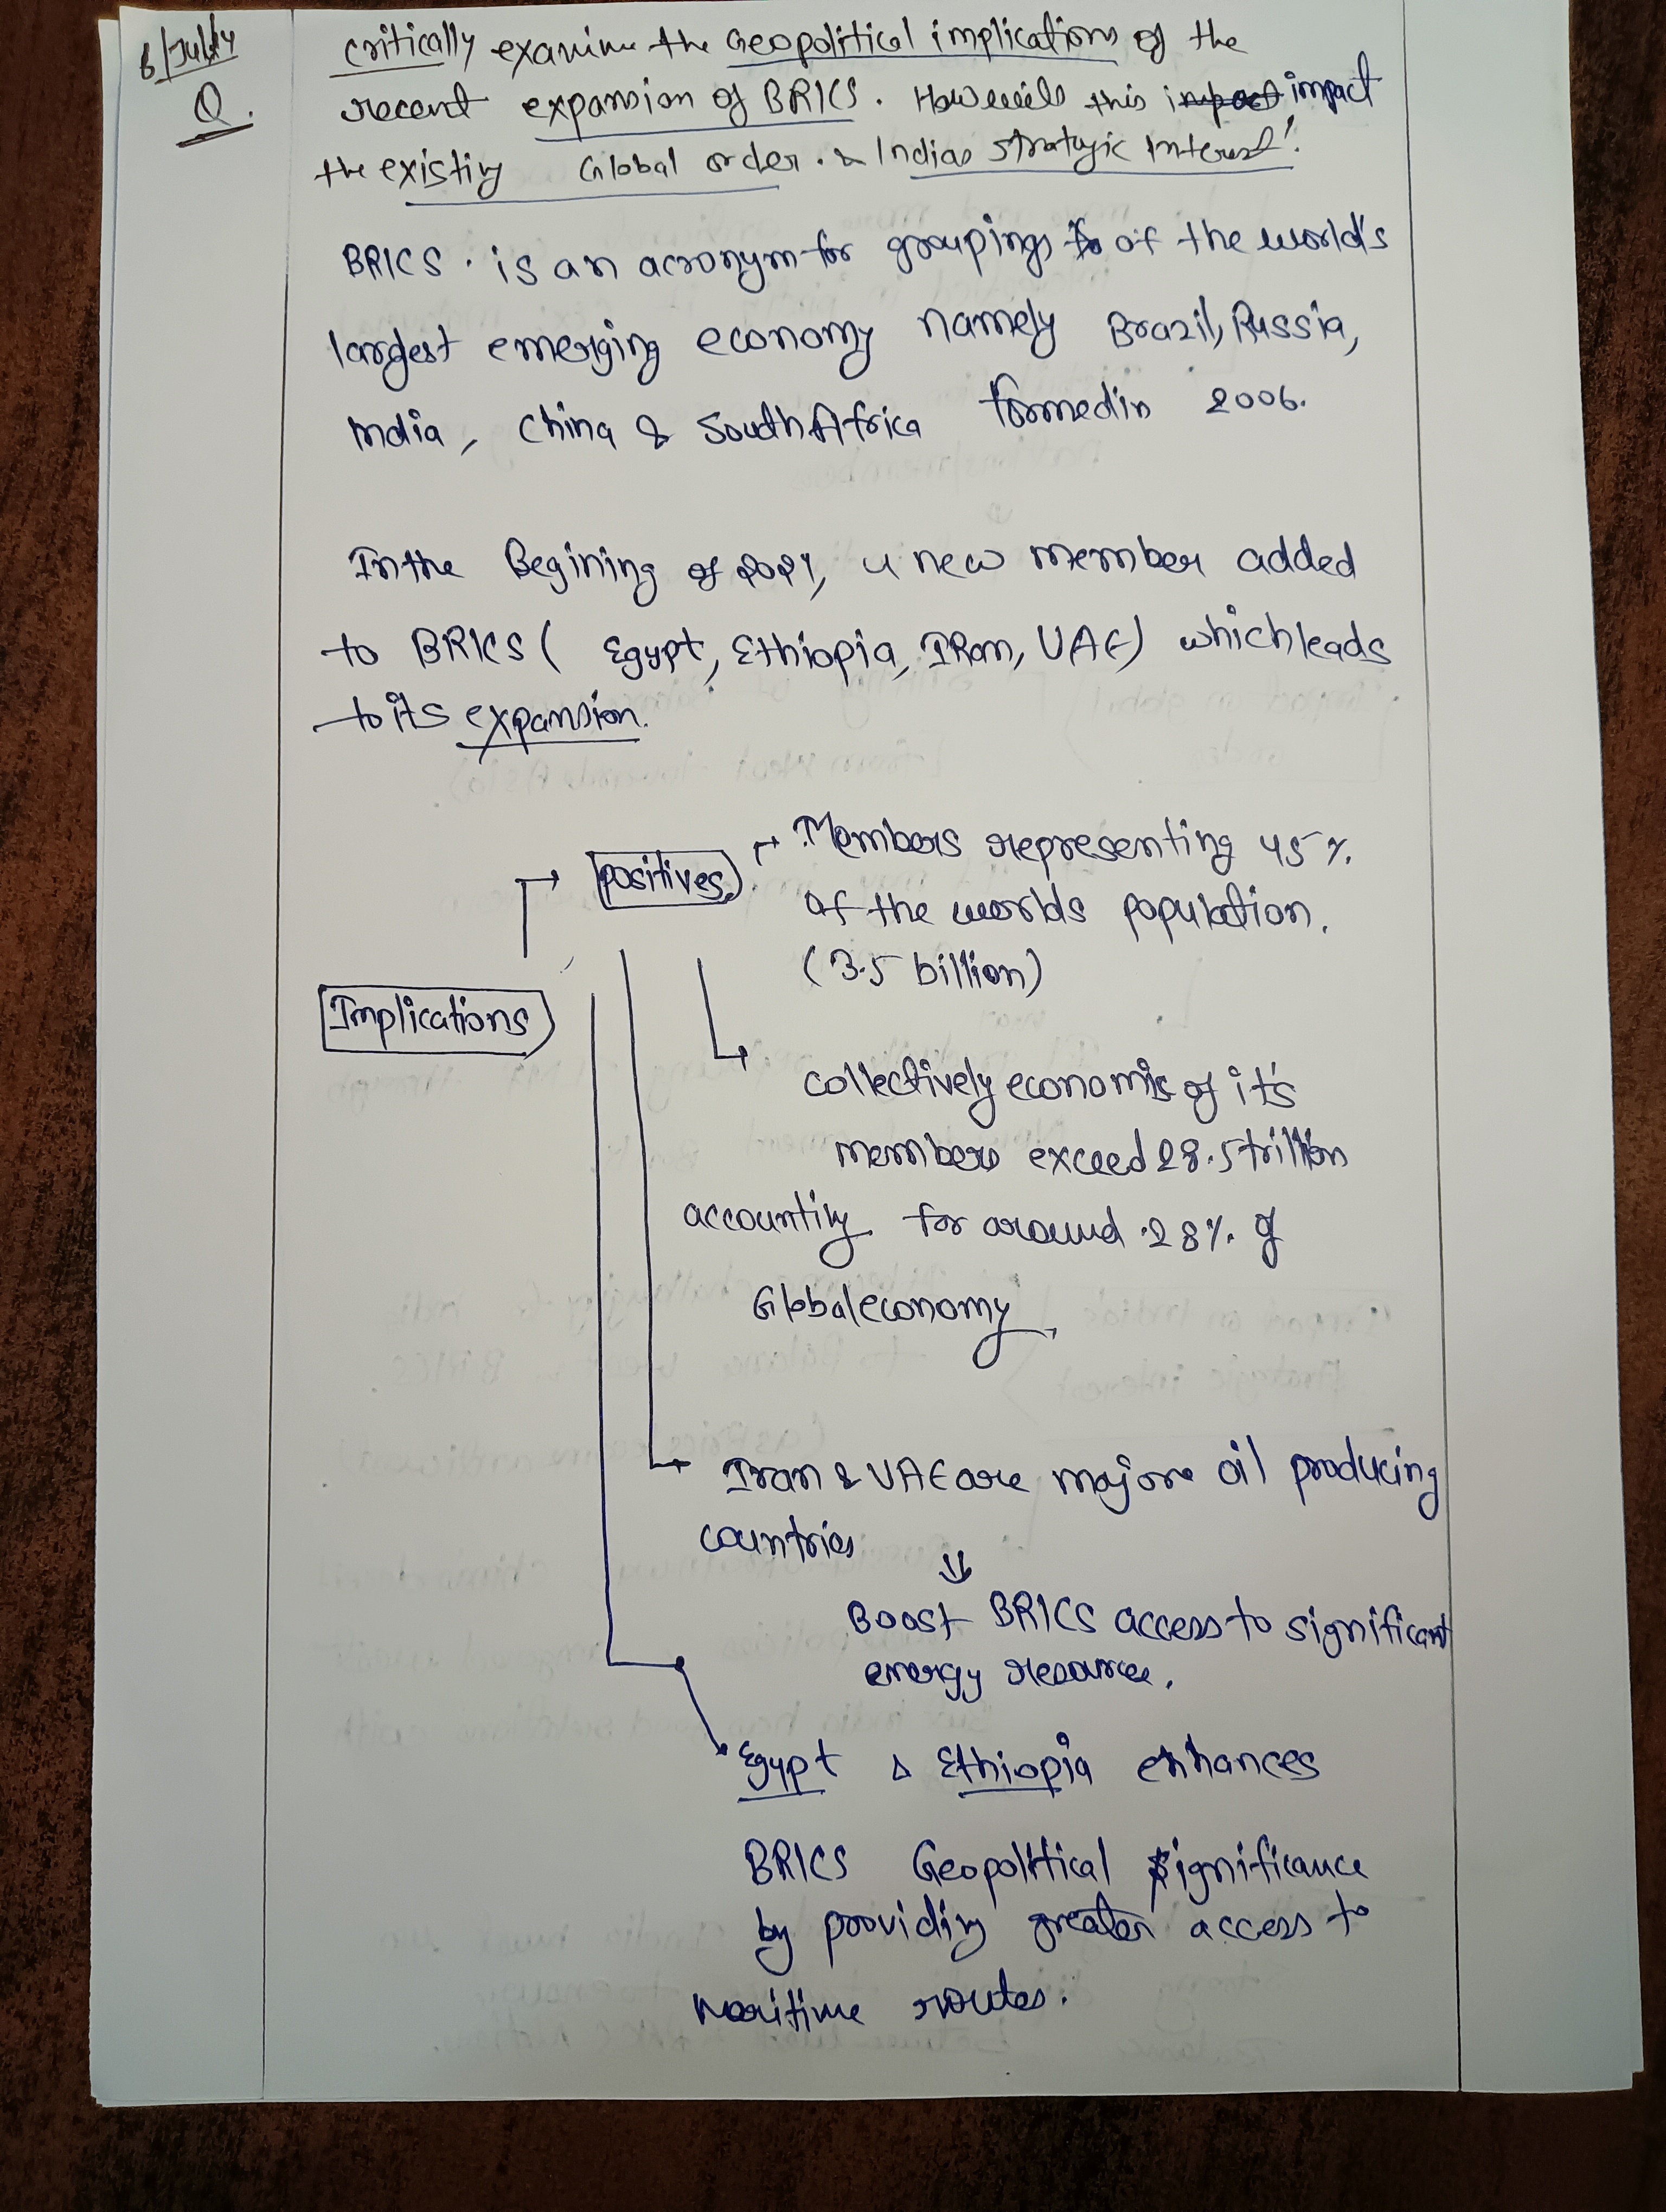 6/July
Q.
Critically examine the Geopolitical implications of the
recent expansion of BRICS. How will this impact impact
the existing Global order. & Indias strategic Interest!
BRICS. is an acronym for groupings of the world's
largest emerging economy namely Brazil, Russia,
India, China & South Africa formed in 2006.
In the Begining of 2024, 4 new member added
to BRICS ( Egypt, Ethiopia, IRan, UAE) which leads
to its expansion.
Positives
Members representing 45%.
of the worlds population.
(3.5 billion)
Implications
collectively economic of it's
members exceed 28.5 trillion
accounting for around 28%. of
Global economy
Iran & UAE are majore oil producing
countries
Boost BRICS access to significant
energy resource.
Egypt & Ethiopia enhances
BRICS Geopolitical significance
by providing greater access to
maritime routes.